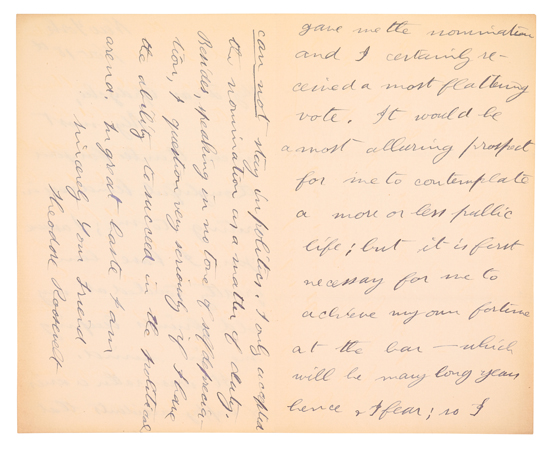 gave me the nomination
and I certainly re-
ceived a most flattering
vote. It would be
a most alluring prospect
for me to contemplate
a more or less public
life; but it is first
necessary for me to
achieve my own fortune
at the bar — which
will be many long years
hence, I fear; so I
can not stay in politics. I only accepted
the nomination as a matter of duty.
Besides, speaking in no tone of self deprecia-
tion, I question very seriously if I have
the ability to succeed in the political
arena. In great haste I am
Sincerely Your Friend
Theodore Roosevelt